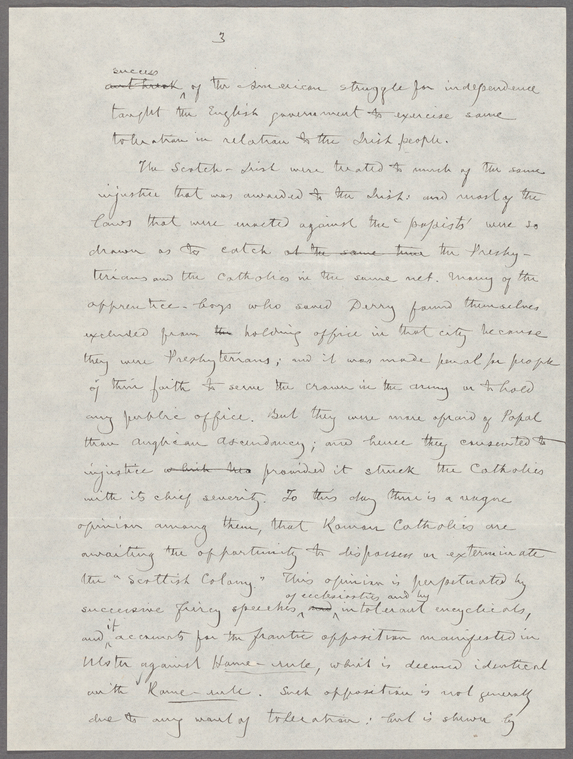 3
success
outbreak of the American struggle for independence
taught the English government to exercise some
toleration in relation to the Irish people.
The Scotch-Irish were treated to much of the same
injustice that was awarded to the Irish: and most of the
laws that were enacted against the "papists" were so
drawn as to catch at the same time the Presby-
terians and the Catholics in the same net. Many of the
apprentice-boys who saved Derry found themselves
excluded from the holding office in that city because
they were Presbyterians; and it was made penal for people
of their faith to serve the crown in the army or to hold
any public office. But they were more afraid of Papal
than Anglican ascendancy; and hence they consented to
injustice which has provided it struck the Catholics
with its chief severity. To this day there is a vague
opinion among them, that Roman Catholics are
awaiting the opportunity to dispossess or exterminate
the "Scottish Colony." This opinion is perpetuated by
of ecclesiastics and by
successive fiercy speeches, and intolerant encyclicals,
it
and accounts for the frantic opposition manifested in
Ulster against Home-rule, which is deemed identical
with Rome-rule. Such opposition is not generally
due to any want of toleration: but is shown by